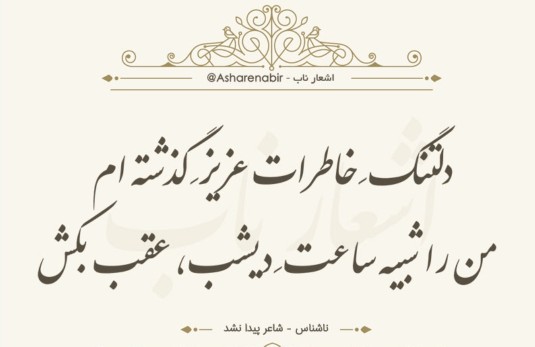 اشعار ناب - Asharenabir@
دلتنگِ خاطرات عزیزِ گذشته ام
من را شبیه ساعتِ دیشب، عقب بکش
ناشناس - شاعر پیدا نشد
اشعار ناب